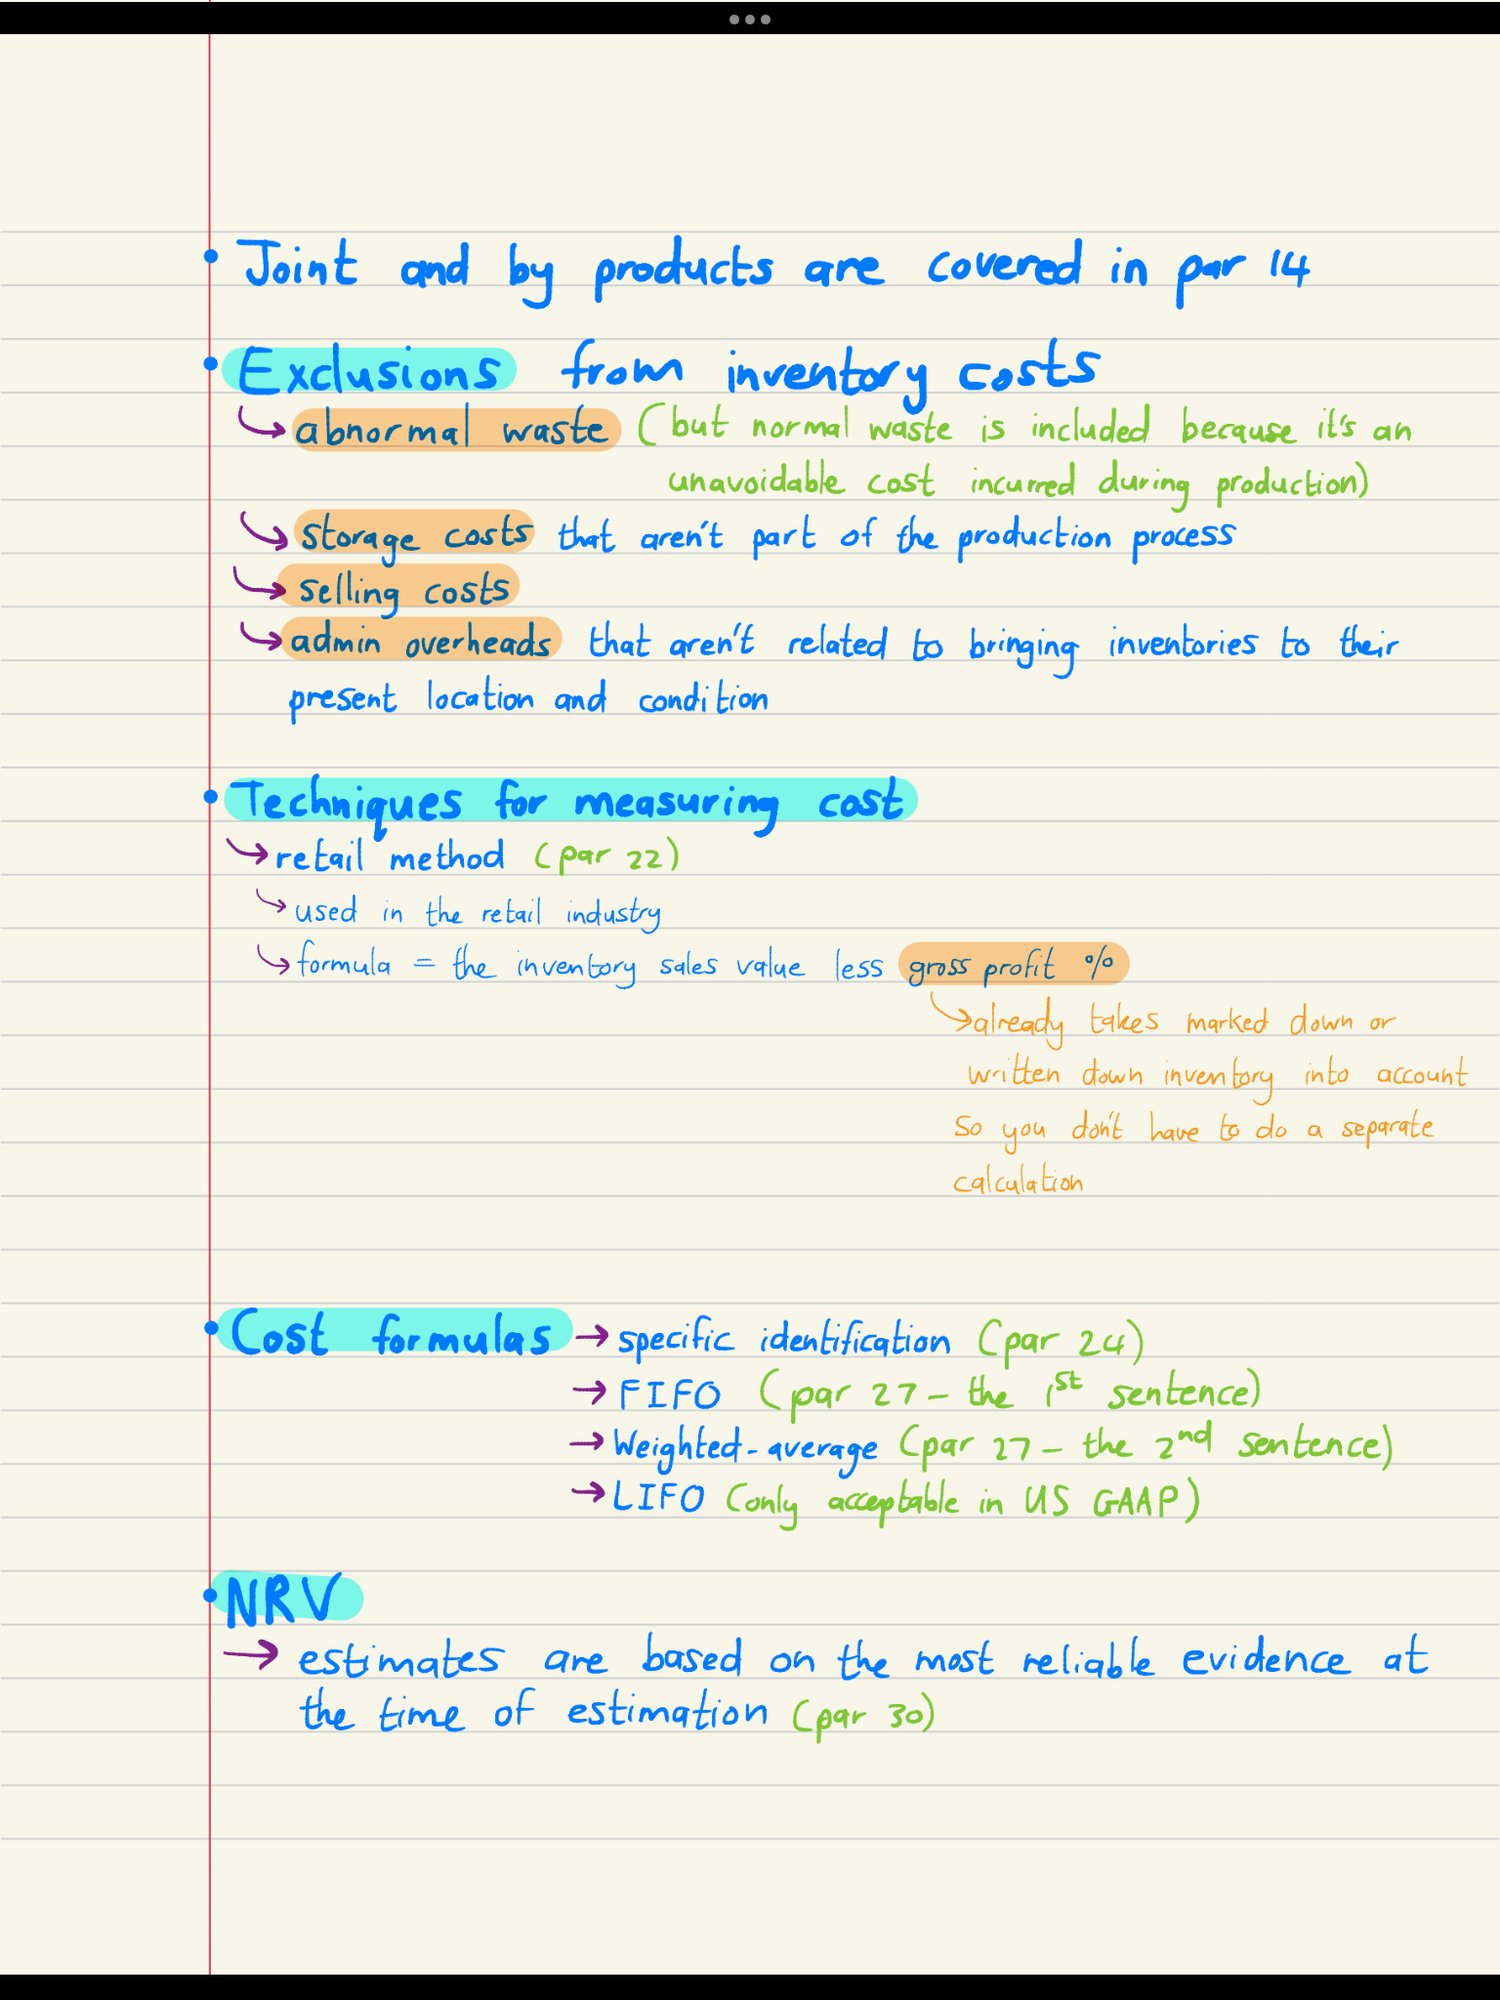 • Joint and by products are covered in par 14
• Exclusions from inventory costs
↳ abnormal waste (but normal waste is included because it's an
unavoidable cost incurred during production)
↳ storage costs that aren't part of the production process
↳ selling costs
↳ admin overheads that aren't related to bringing inventories to their
present location and condition
• Techniques for measuring cost
↳ retail method (par 22)
↳ used in the retail industry
↳ formula = the inventory sales value less gross profit %
↳ already takes marked down or
written down inventory into account
so you don't have to do a separate
calculation
• Cost formulas → specific identification (par 24)
→ FIFO (par 27 - the 1st sentence)
→ Weighted-average (par 27 - the 2nd sentence)
→ LIFO (only acceptable in US GAAP)
• NRV
→ estimates are based on the most reliable evidence at
the time of estimation (par 30)